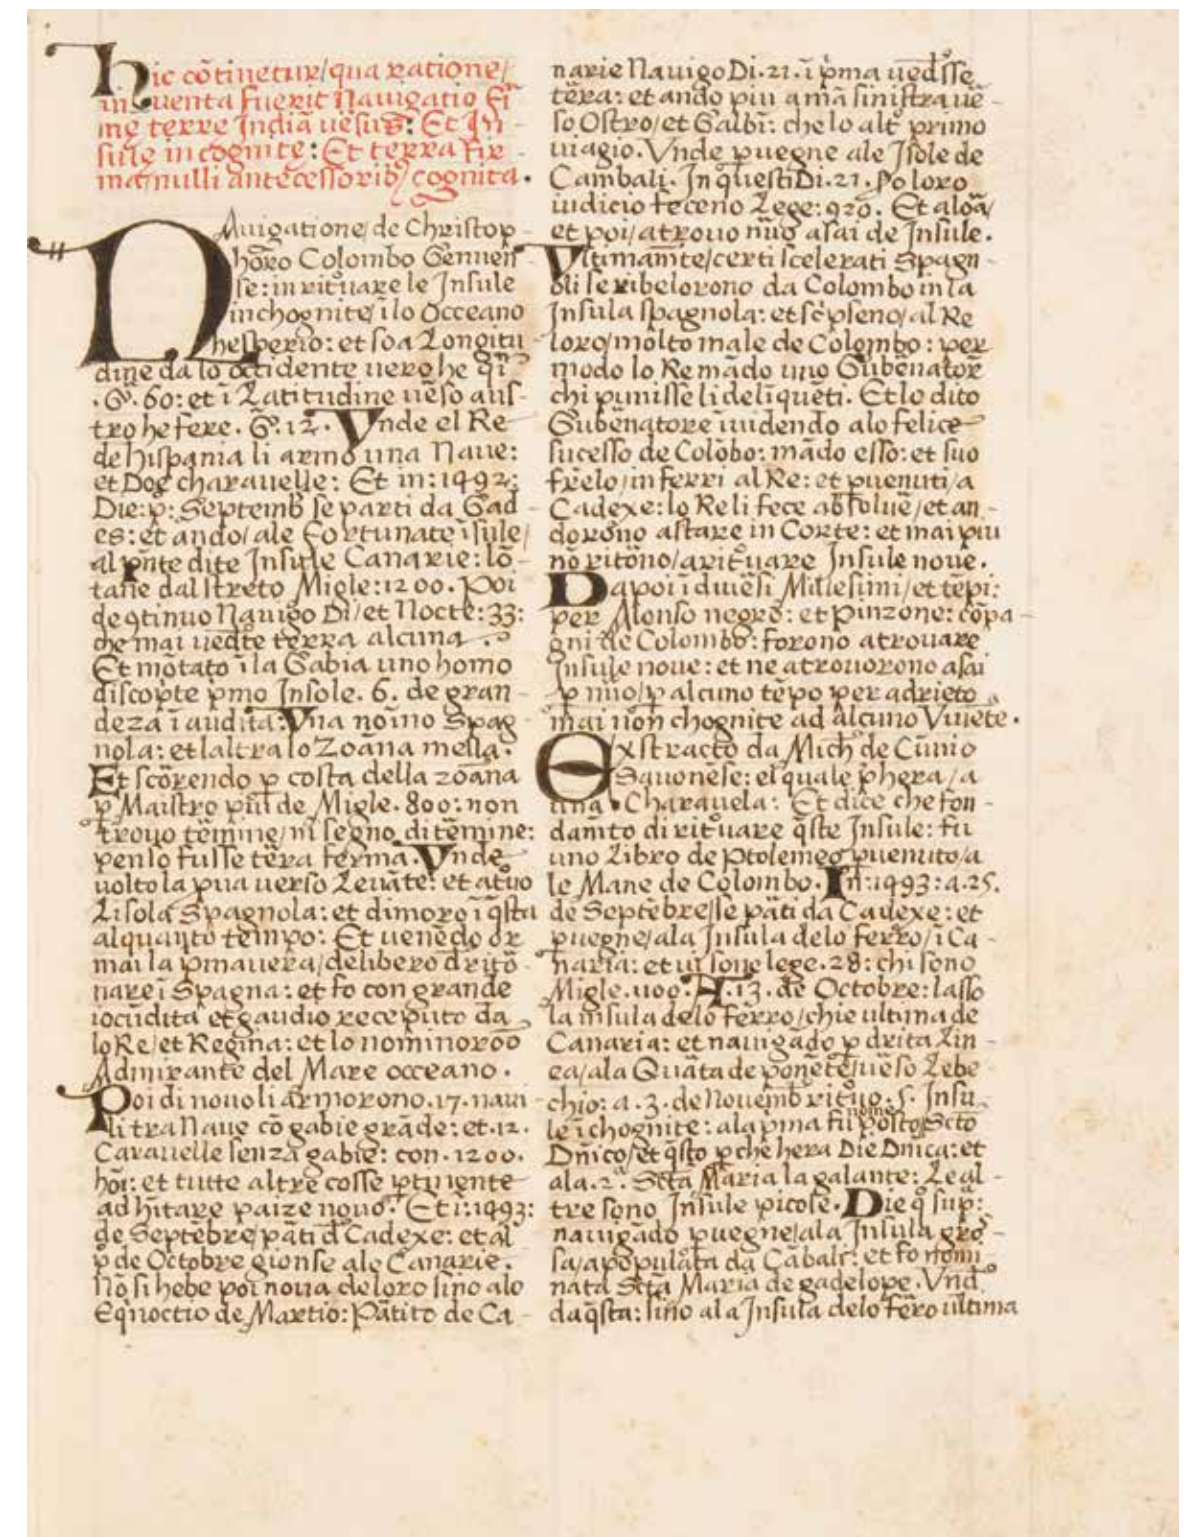 Hic cõtinetur/qua ratione/
inuenta fuerit Nauigatio Fi
me terre Indiã uẽsus: Et In -
sule incognite: Et terra fir -
ma/nulli antẽcessorib⁹ cognita.
Nauigatione/de Christop -
hõro Colombo Genuen
se: in ritºuare le Insule
inchognite/ ĩ lo Occeano
hesperio: et soa Longitu
dine da lo occidente uero he
.Gⁱ. 60: et ĩ Latitudine uẽso aus -
tro he fere. Gⁱ. 12. Vnde el Re
de hispania li armo una Naue:
et Doe charauelle: Et in: 1492:
Die: pº: Septemb se parti da Gad
es: et ando/ale Fortunate ĩsule/
al pñte dite Insule Canarie: lõ
tane dal streto Migle: 1200. Poi
de 9tinuo Nauigo Di/et Nocte: 33:
che mai uedte terra alcuna.
Et mõtato ĩ la Gabia uno homo
discopte pmo Insole. 6. de gran -
deza ĩ audita: Vna noĩno Spag -
nola: et laltra lo Zoãna mesla.
Et scõrendo p costa della zoãna
p Maistro piu de Migle. 800: non
trouo tẽmine/ni segno di tẽmine:
pen lo fusse tẽra ferma. Vnde
uolto la pua uerso Leuãte: et atºuo
Lisola Spagnola: et dimoro ĩ q̃sta
alquanto tempo: Et uenẽdo or
mai la pmauera/delibero d ritõ -
nare ĩ Spagna: et fo con grande
iocũdita et gaudio receputo da
lo Re/et Regina: et lo nominoroõ
Admirante del Mare occeano.
Poi di nouo li armorono. 17. naui
li tra Naue cõ gabie grãde: et. 12.
Carauelle senza gabie: con. 1200.
hõi: et tutte altre cosse ptinente
ad hitare paize nouo. Et ĩ: 1493:
de Septẽbre/pãti d Cadexe: et al
pº de Octobre gionse ale Canarie.
Nõ si hebe poi noua de loro sino alo
Eq̃noctio de Martio: Pãtito de Ca -
narie Nauigo Di. 21. ĩ pⁱma uedᵉsse
tẽra: et ando piu a mã sinistra uẽ -
so Ostro/et Galbĩ: che lo altº primo
uiagio. Vnde puegne ale Isole de
Cambali. In questi Di. 21. Po loro
iudicio feceno Lege: 920. Et aloã/
et poi/atrouo nũo asai de Insule.
Vltimamte/certi scelerati Spagn -
oli se ribelorono da Colombo in la
Insula spagnola: et scⁱpseno/al Re
loro/molto male de Colombo: per
modo lo Re mãdo uno Gubẽnatorẽ
chi punisse li deliq̃uẽti. Et lo dito
Gubẽnatore inuidendo alo felice
sucesso de Colõbo: mãdo esso: et suo
frẽlo/in ferri al Re: et puenuti/a
Cadexe: lo Re li fece absoluẽ/et an -
dorono a stare in Corte: et mai piu
nõ ritõno/a ritºuare Insule noue.
Dapoi ĩ diuẽsi Millesimi/et tẽpi:
per Alonso negro: et Pinzone: cõpa -
gni de Colombo: forono atrouare
Insule noue: et ne atrouorono asai
p nũo/p alcuno tẽpo per adrieto
mai non chognite ad alcuno Viuẽte.
Exstracto da Michᵉ de Cunio
Sauonese: el quale p̃hera/a
una Charauela: Et dice che fon -
damto di ritºuare q̃ste Insule: fu
uno Libro de Ptolemeo puenuto/a
le Mane de Colombo. In: 1493: a. 25.
de Septẽbre/se pãti da Cadexe: et
puegne/ala Insula delo ferro/ĩ Ca -
naria: et ui sone lege. 28: chi sono
Migle. 1100. A. 13. de Octobre: lasso
la insula delo ferro/chie ultima de
Canaria: et nauigãdo p drita Lin -
ea/ala Quãta de ponẽte/uẽso Lebe -
chio: a. 3. de Nouemb ritºuo. 5. Insu
le ĩchognite: ala pma fu posto nome Scto
Dñico/et q̃sto pche hera Die Dñica: et
ala. 2ª. Scta Maria la galante: Le al -
tre sono Insule picole. Die qº sup:
nauigãdo puegne/ala Insula gro -
sa/apopulata da Cãbali: et fo nomi
nata Scta Maria de gadelope. Vnd
da q̃sta: sino ala Insula delo fẽro ultima